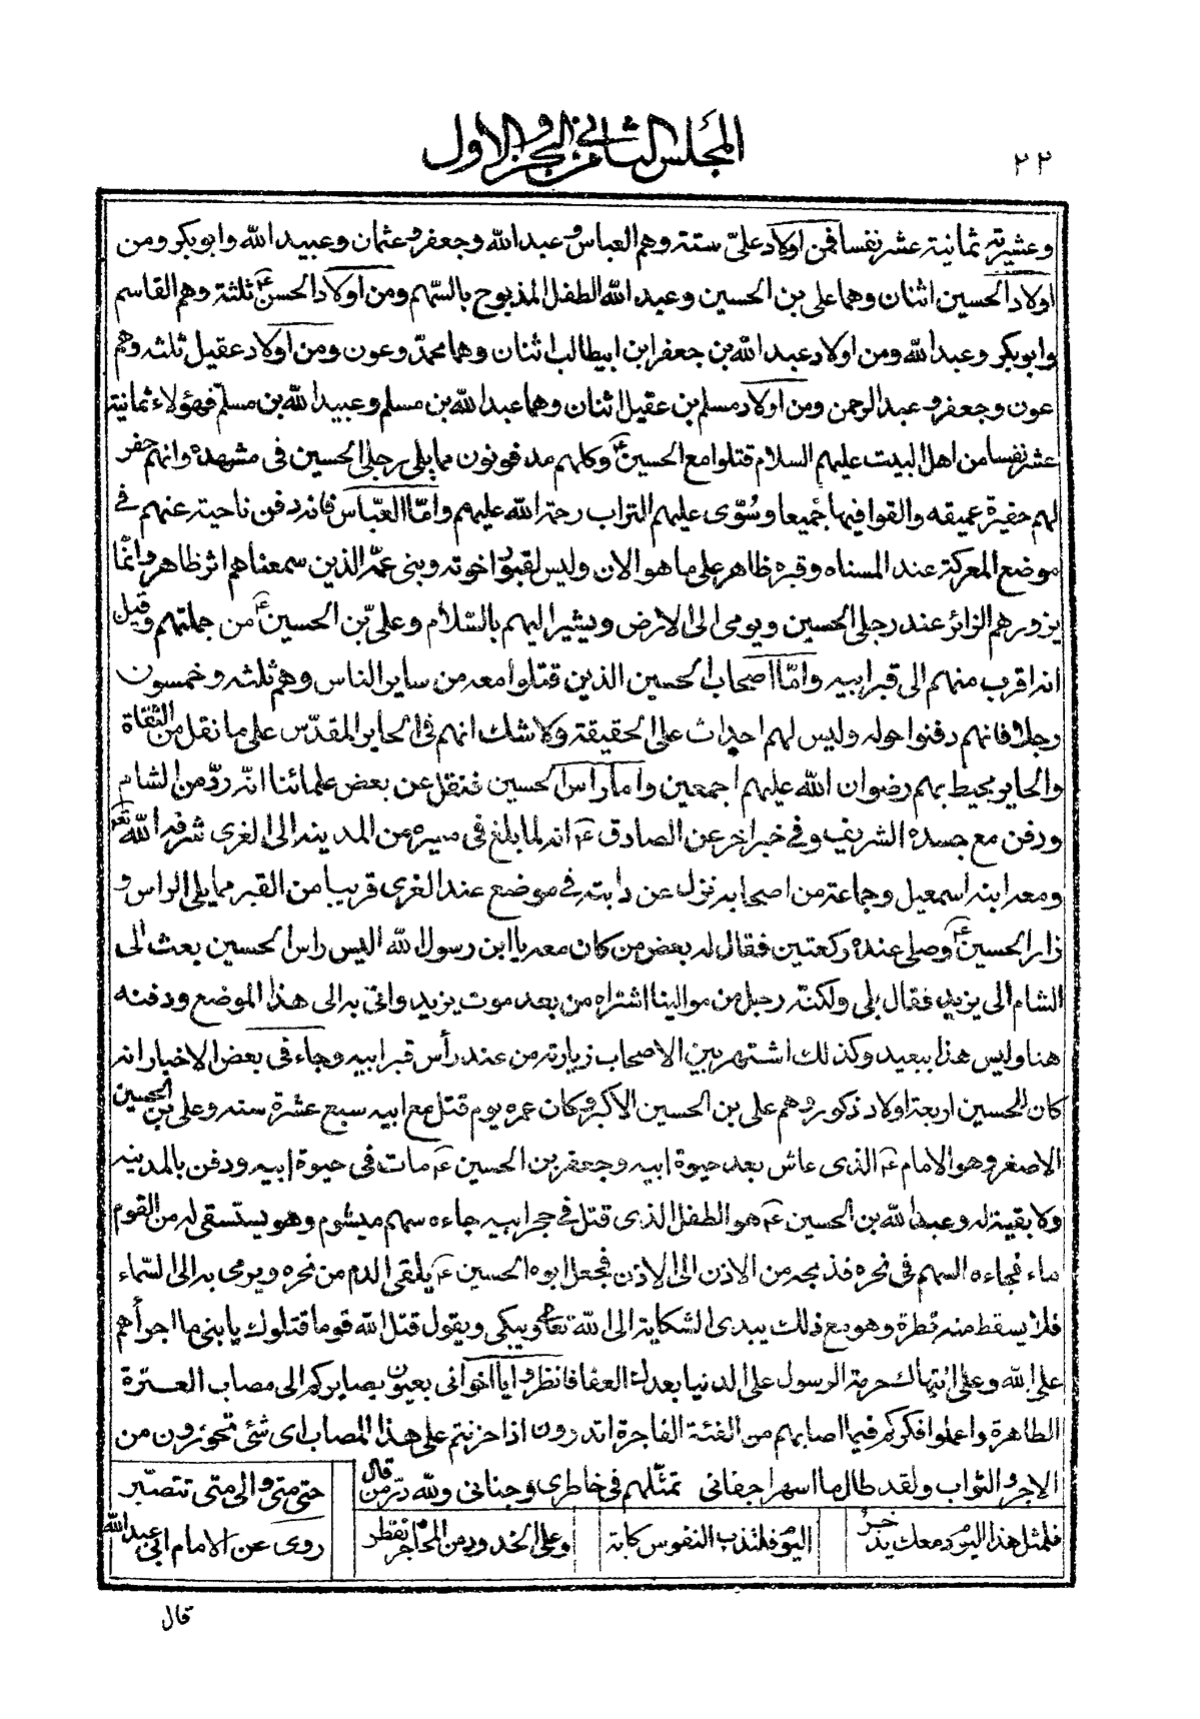 المجلس الثاني من الجزو الاول
٢٢
وعشيرته ثمانية عشر نفسا فمن اولاد علىّ ستته وهم العباس وعبد الله وجعفر وعثمان وعبيد الله وابوبكر ومن
اولاد الحسين اثنان وهما على بن الحسين وعبد الله الطفل المذبوح بالسّهم ومن اولاد الحسن ع ثلثة وهم القاسم
وابوبكر وعبد الله ومن اولاد عبد الله بن جعفر ابن ابيطالب اثنان وهما محمّد وعون ومن اولاد عقيل ثلثه وهم
عون وجعفر وعبد الرحمن ومن اولاد مسلم بن عقيل اثنان وهما عبد الله بن مسلم وعبيد الله بن مسلم فهؤلاء ثمانية
عشر نفسا من اهل البيت عليهم السلام قتلوا مع الحسين ع وكلهم مدفونون مما يلى رجلى الحسين فى مشهده وانهم حفر
لهم حفيرة عميقه والقوا فيها جميعا وسُوّى عليهم التراب رحمة الله عليهم وامّا العبّاس فانه دفن ناحية عنهم فى
موضع المعركة عند المسناه وقبره ظاهر على ما هو الان وليس لقبور اخوته وبنى عمّه الذين سمعناهم اثر ظاهر وانّما
يزورهم الزائر عند رجلى الحسين ويومى الى الارض ويشير اليهم بالسّلام وعلى بّن الحسين ع من جملتهم وقيل
انه اقرب منهم الى قبر ابيه وامّا اصحاب الحسين الذين قتلوا معه من ساير الناس وهم ثلثه وخمسون
رجلا فانهم دفنوا حوله وليس لهم اجداث على الحقيقة ولا شك انهم فى الحاير المقدّس على ما نقل من الثقاة
والحاير محيط بهم رضوان الله عليهم اجمعين واما راس الحسين فنقل عن بعض علمائنا انّه ردّ من الشام
ودفن مع جسده الشريف وفى خبر اخر عن الصادق ع انه لما بلغ فى مسيره من المدينه الى الغرى شرفه الله تع
ومعه ابنه اسمعيل وجماعة من اصحابه نزل عن دابته فى موضع عند الغرى قريبا من القبر مما يلى الراس و
زار الحسين ع وصلى عنده ركعتين فقال له بعض من كان معه يا ابن رسول الله اليس راس الحسين بعث الى
الشام الى يزيد فقال بلى ولكنّه رجل من موالينا اشتراه من بعد موت يزيد واتى به الى هذا الموضع ودفنه
هنا وليس هذا ببعيد وكذلك اشتهر بين الاصحاب زيارته من عند رأس قبر ابيه وجاء فى بعض الاخبار انه
كان للحسين اربعة اولاد ذكور وهم على بن الحسين الاكبر وكان عمره يوم قتل مع ابيه سبع عشرة سنه وعلى بن الحسين
الاصغر وهو الامام ع الذى عاش بعد حيوة ابيه وجعفر بن الحسين ع مات فى حيوة ابيه ودفن بالمدينه
ولا بقية له وعبد الله بن الحسين ع هو الطفل الذى قتل فى حجر ابيه جاءه سهم ميشوم وهو يستسقى له من القوم
ماء فجاءه السهم فى نحره فذبحه من الاذن الى الاذن فجعل ابوه الحسين ع يلقى الدم من نحره ويرمى به الى السّماء
فلا يسقط منه قطرة وهو مع ذلك يبدى الشكاية الى الله تعالى ويبكى ويقول قتل الله قوما قتلوك يا بنى ما اجرأهم
على الله وعلى انتهاك حرمة الرسول على الدنيا بعدك العفا فانظروا يا اخوانى بعيون بصايركم الى مصاب العترة
الطاهرة واعملوا فكركم فيما اصابهم من الفئة الفاجرة اتدرون اذا حزنتم على هذا المصاب اى شئ تحوزون من
الاجر والثواب ولقد طال ما اسهر اجفانى تمثّلهم فى خاطرى وجنانى ولله درّ من قال
حتى متى والى متى تتصبّر
فلمثل هذا اليوم دمعك يذخر
اليوم فلتذب النفوس كابة
وعلى الخدود من المحاجر تقطر
روى عن الامام ابى عبد الله
قال